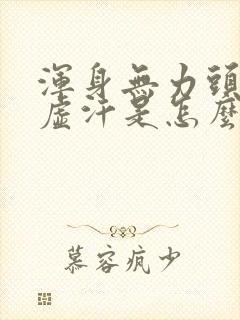 渾身無力頭
虛汗是怎麼
慕容瘋少